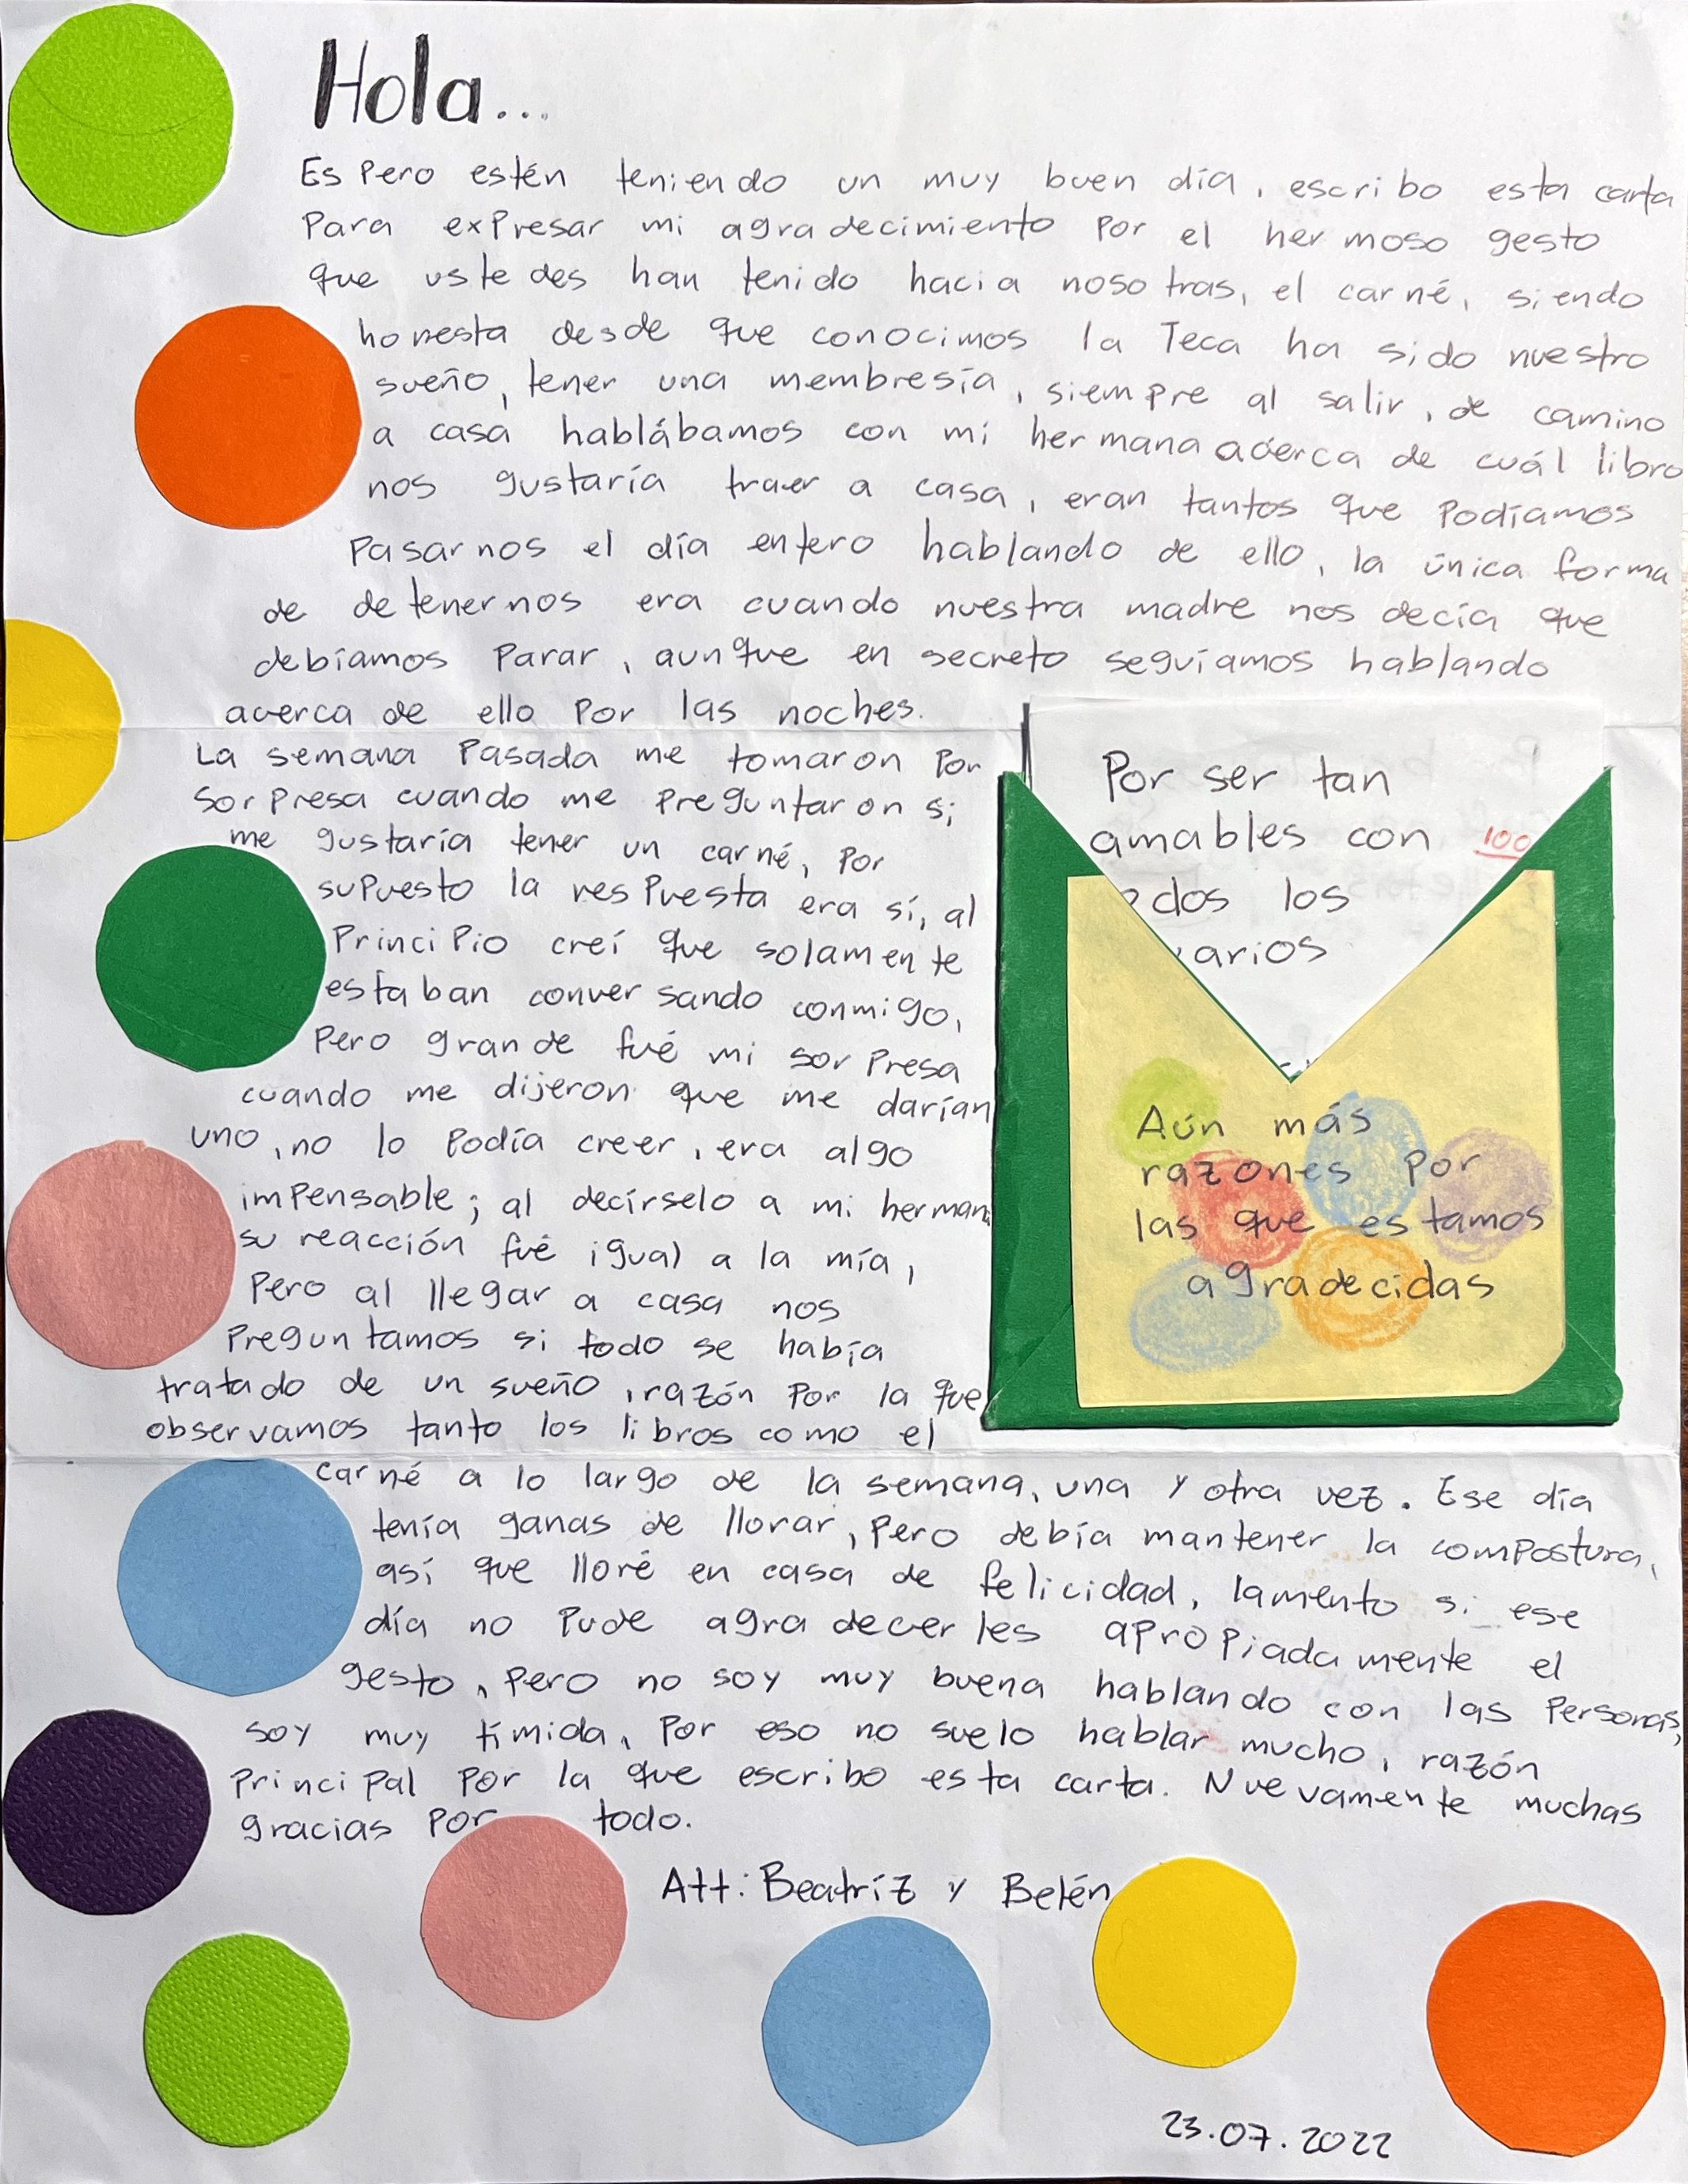 Hola...
Espero estén teniendo un muy buen día, escribo esta carta
para expresar mi agradecimiento por el hermoso gesto
que ustedes han tenido hacia nosotras, el carné, siendo
honesta desde que conocimos la Teca ha sido nuestro
sueño, tener una membresía, siempre al salir, de camino
a casa hablábamos con mi hermana acerca de cuál libro
nos gustaría traer a casa, eran tantos que podíamos
pasarnos el día entero hablando de ello, la única forma
de detenernos era cuando nuestra madre nos decía que
debíamos parar, aunque en secreto seguíamos hablando
acerca de ello por las noches.
La semana pasada me tomaron por
sorpresa cuando me preguntaron si
me gustaría tener un carné, por
supuesto la respuesta era sí, al
principio creí que solamente
estaban conversando conmigo,
pero grande fué mi sorpresa
cuando me dijeron que me darían
uno, no lo podía creer, era algo
impensable; al decírselo a mi hermana
su reacción fué igual a la mía,
pero al llegar a casa nos
preguntamos si todo se había
tratado de un sueño, razón por la que
observamos tanto los libros como el
carné a lo largo de la semana, una y otra vez. Ese día
tenía ganas de llorar, pero debía mantener la compostura,
así que lloré en casa de felicidad, lamento si ese
día no pude agradecerles apropiadamente el
gesto, pero no soy muy buena hablando con las personas,
soy muy tímida, por eso no suelo hablar mucho, razón
principal por la que escribo esta carta. Nuevamente muchas
gracias por todo.
Att: Beatríz y Belén
23.07.2022
Por ser tan
amables con 100
odos los
arios
Aún más
razones por
las que estamos
agradecidas